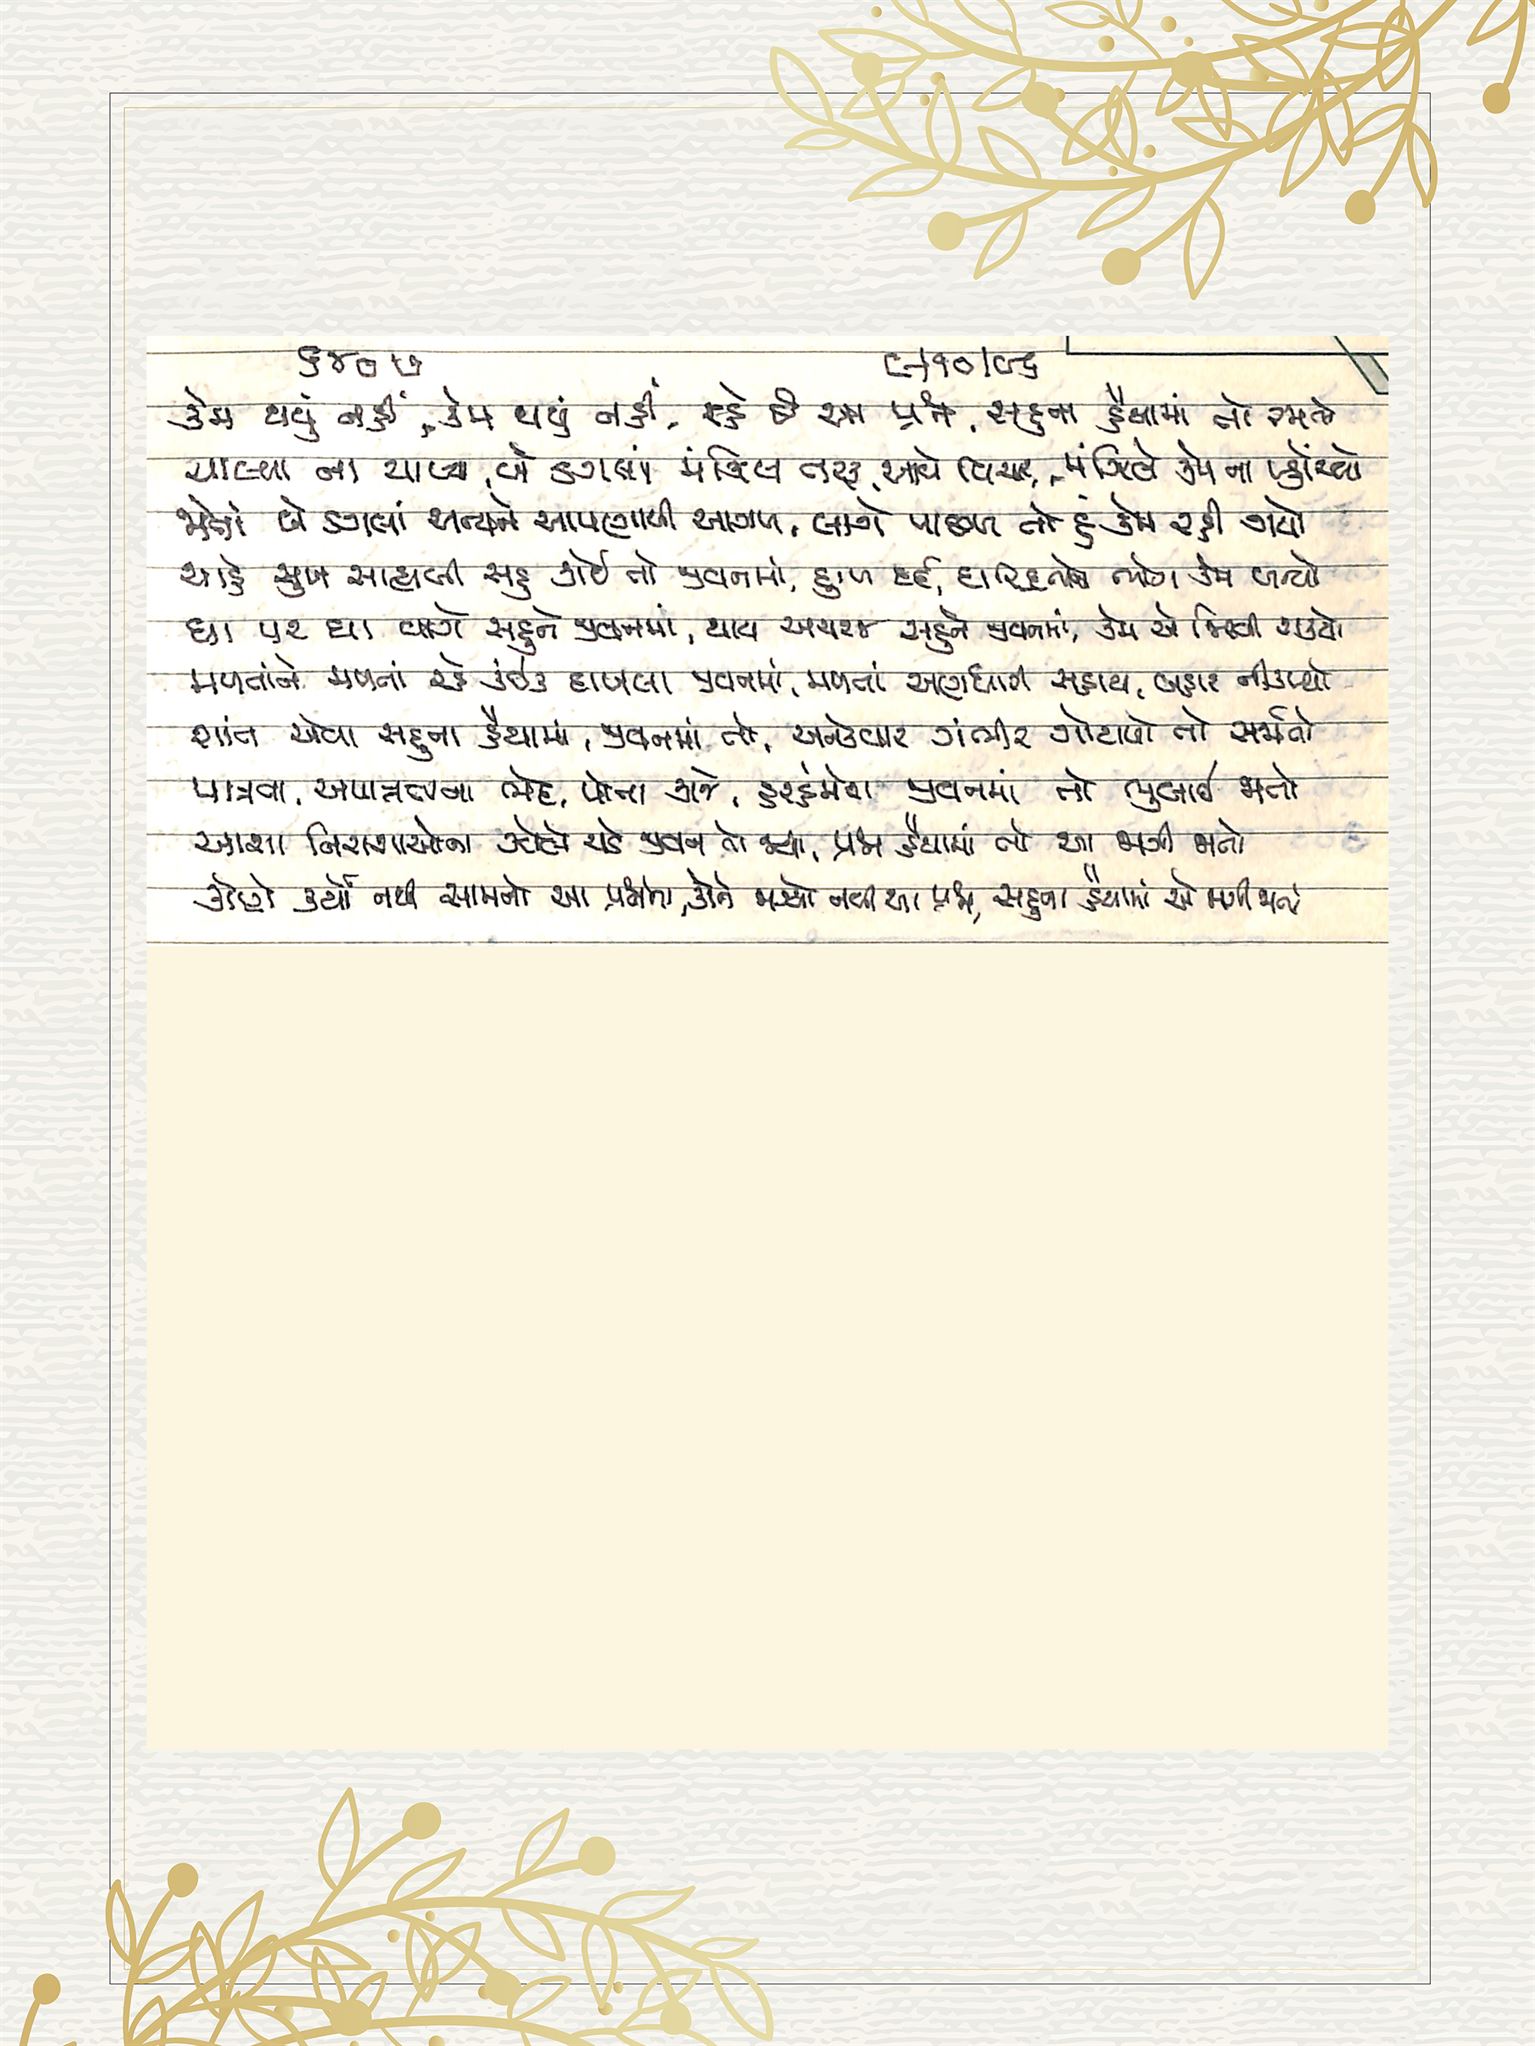 ૬૪૦૭ ૯/૧૦/૯૬
કેમ થયું નહીં, કેમ થયું નહીં, રહે છે આ પ્રશ્ન, સહુના હૈયામાં તો
ચાલ્યા ના ચાલ્યા, બે ડગલાં મંઝિલ તરફ, આવે વિચાર, મંઝિલે કેમ ના પ્હોંચ્યો
જોતાં બે ડગલાં અન્યને આપણાથી આગળ, લાગે પાછળ તો હું કેમ રહી ગયો
ચાહે સુખ સાહ્યબી સહુ કોઈ તો જીવનમાં, દુઃખ દર્દ, દારિદ્રનો ભોગ કેમ બન્યો
ઘા પર ઘા વાગે સહુને જીવનમાં, થાય અચરજ સહુને જીવનમાં, કેમ એ ઝિલી શક્યો
મળતાંને મળતાં રહે કંઈક દાખલા જીવનમાં, મળતાં અણધારી સહાય, બહાર નીકળ્યો
શાંત એવા સહુના હૈયામાં, જીવનમાં તો, અનેકવાર ગંભીર ગોટાળો તો સર્જાતો
પાત્રતા, અપાત્રતાના ભેદ, પોતા કાજે, હરહંમેશ જીવનમાં તો ભુલાઈ જાતો
આશા નિરાશાઓના ઝોલે ચડે જીવન તો જ્યાં, પ્રશ્ન હૈયામાં તો આ જાગી જાતો
કોણે કર્યો નથી સામનો આ પ્રશ્નનો, કોને જાગ્યો નથી આ પ્રશ્ન, સહુના હૈયામાં એ જાગી જાતો